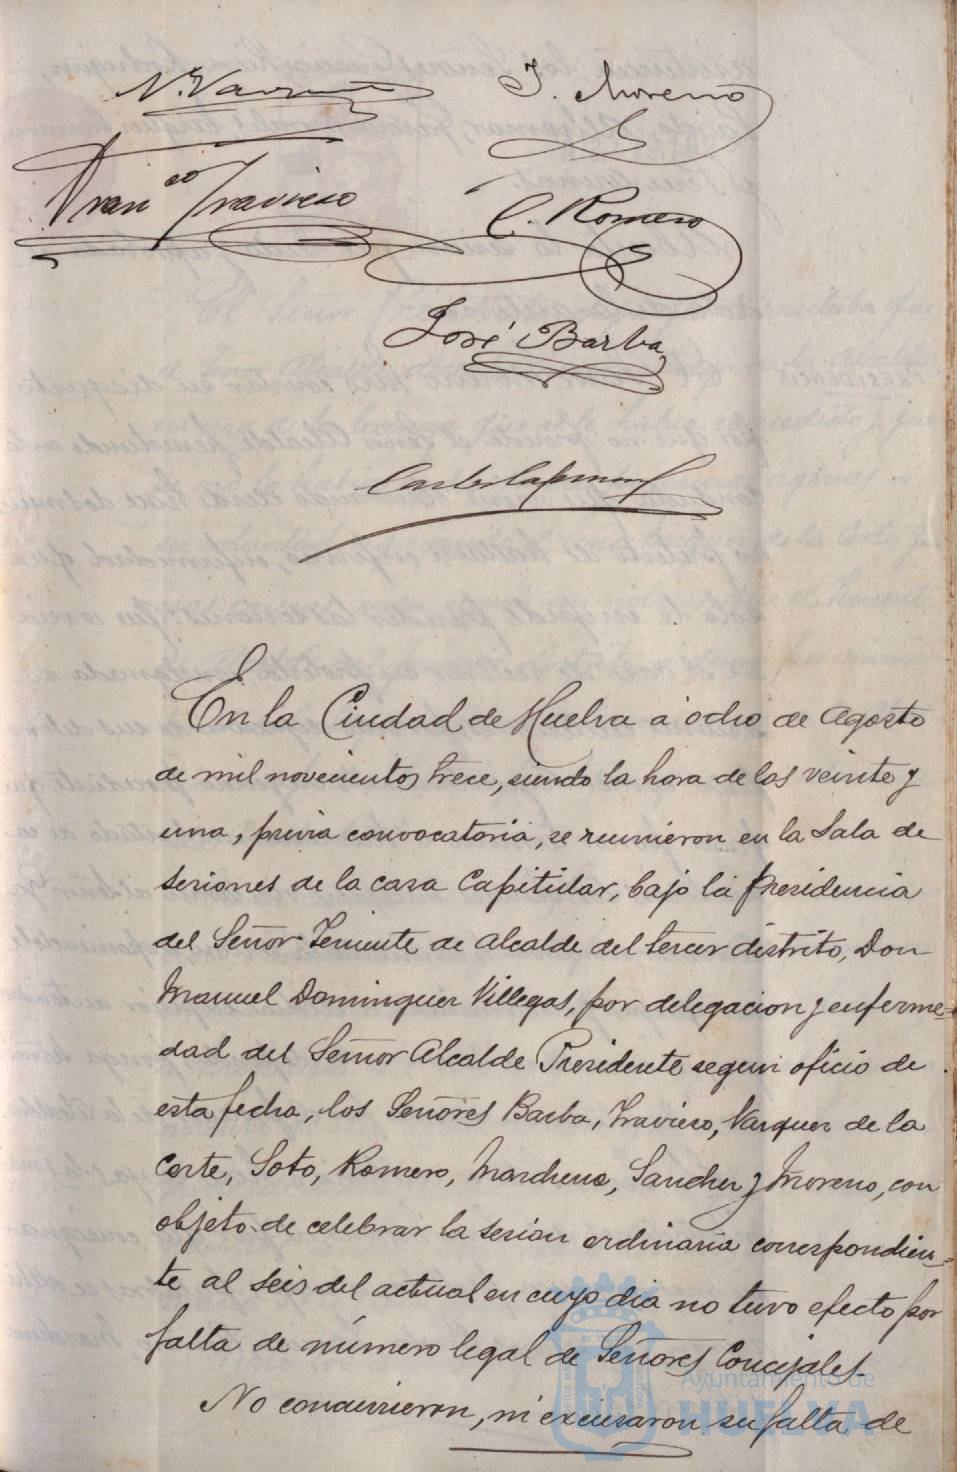 N. Vazquez J. Moreno
Franco Travieso
C. Romero
José Barba
En la Ciudad de Huelva a ocho de Agosto
de mil novecientos trece, siendo la hora de las veinte y
una, previa convocatoria, se reunieron en la Sala de
sesiones de la casa Capitular, bajo la presidencia
del Señor Teniente de Alcalde del tercer distrito, Don
Manuel Dominguez Villegas, por delegacion y enferme=
dad del Señor Alcalde Presidente segun oficio de
esta fecha, los Señores Barba, Travieso, Vazquez de la
Corte, Soto, Romero, Marchena, Sanchez y Moreno, con
objeto de celebrar la sesion ordinaria correspondien=
te al seis del actual en cuyo dia no tuvo efecto por
falta de número legal de Señores Concejales.
No concurrieron, ni excusaron su falta de
Ayuntamiento de
HUELVA